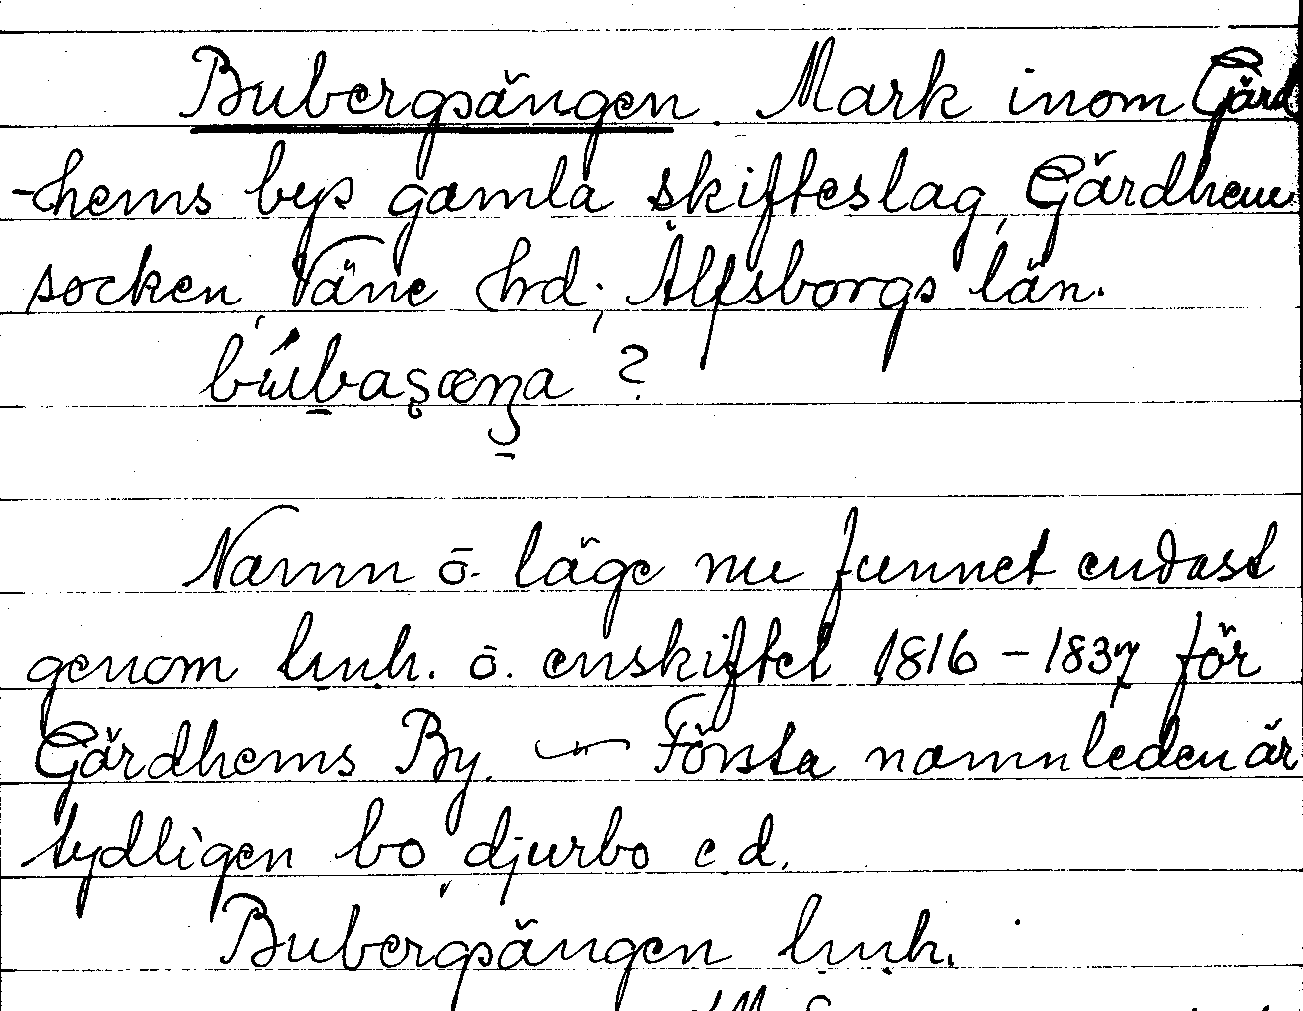 Bubergsängen. Mark inom Gärd
-hems bys gamla skifteslag, Gärdhem
socken, Väne hrd; Älfsborgs län.
?
Namn o. läge nu funnet endast
genom lmh. o. enskiftet 1816-1837 för
Gärdhems By. — Första namnleden är
tydligen bo, djurbo e d.
Bubergsängen lmh.